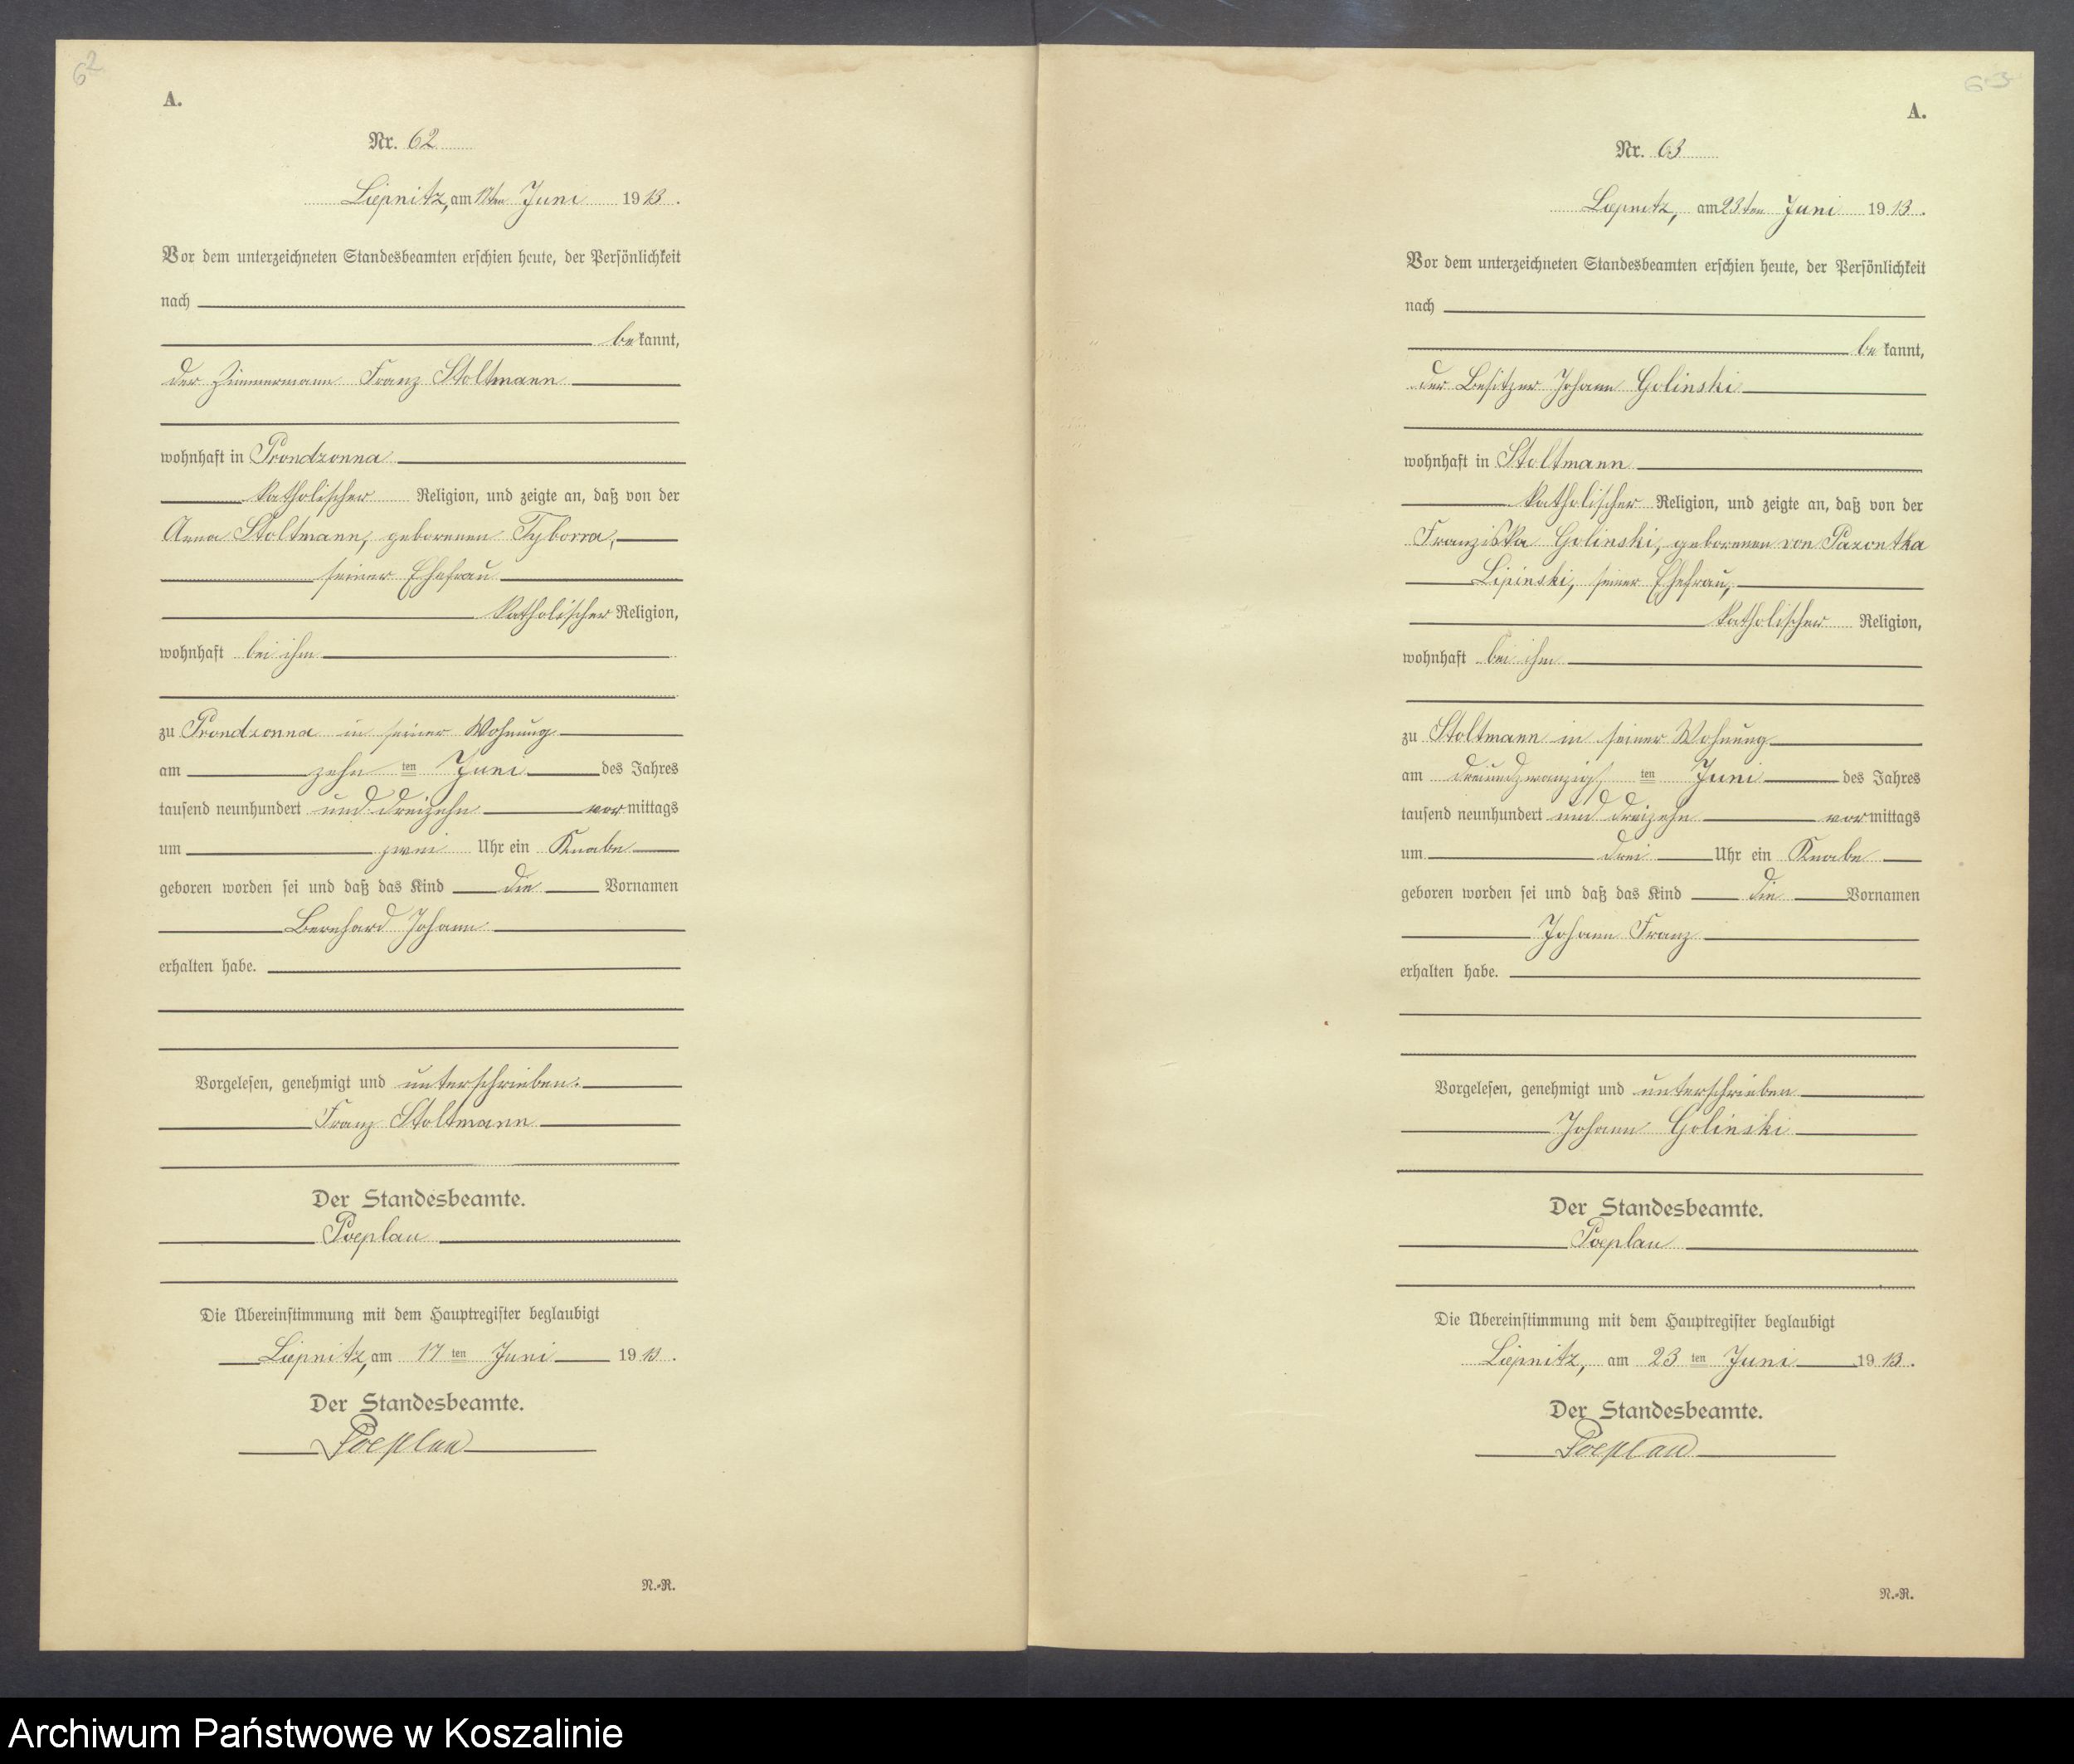 62
A.
Nr. 62
Liepnitz, am 17ten Juni 1913.
Vor dem unterzeichneten Standesbeamten erschien heute, der Persönlichkeit
nach
bekannt,
der Zimmermann Franz Stoltmann
wohnhaft in Prondzonna
katholischer Religion, und zeigte an, daß von der
Anna Stoltmann, geborenen Tyborra,
seiner Ehefrau
katholischer Religion,
wohnhaft bei ihm
zu Prondzonna in seiner Wohnung
am zehn ten Juni des Jahres
tausend neunhundert und dreizehn vormittags
um zwei Uhr ein Knabe
geboren worden sei und daß das Kind die Vornamen
Bernhard Johann
erhalten habe.
Vorgelesen, genehmigt und unterschrieben.
Franz Stoltmann
Der Standesbeamte.
Poeplau
Die Übereinstimmung mit dem Hauptregister beglaubigt
Liepnitz, am 17 ten Juni 1913.
Der Standesbeamte.
Poeplau
N.-R.
63
A.
Nr. 63
Liepnitz, am 23ten Juni 1913.
Vor dem unterzeichneten Standesbeamten erschien heute, der Persönlichkeit
nach
bekannt,
der Besitzer Johann Golinski
wohnhaft in Stoltmann
katholischer Religion, und zeigte an, daß von der
Franziska Golinski, geborenen von Pazontka
Lipinski, seiner Ehefrau,
katholischer Religion,
wohnhaft bei ihm
zu Stoltmann in seiner Wohnung
am dreiundzwanzigs ten Juni des Jahres
tausend neunhundert und dreizehn vormittags
um drei Uhr ein Knabe
geboren worden sei und daß das Kind die Vornamen
Johann Franz
erhalten habe.
Vorgelesen, genehmigt und unterschrieben
Johann Golinski
Der Standesbeamte.
Poeplau
Die Übereinstimmung mit dem Hauptregister beglaubigt
Liepnitz, am 23 ten Juni 1913.
Der Standesbeamte.
Poeplau
N.-R.
Archiwum Państwowe w Koszalinie